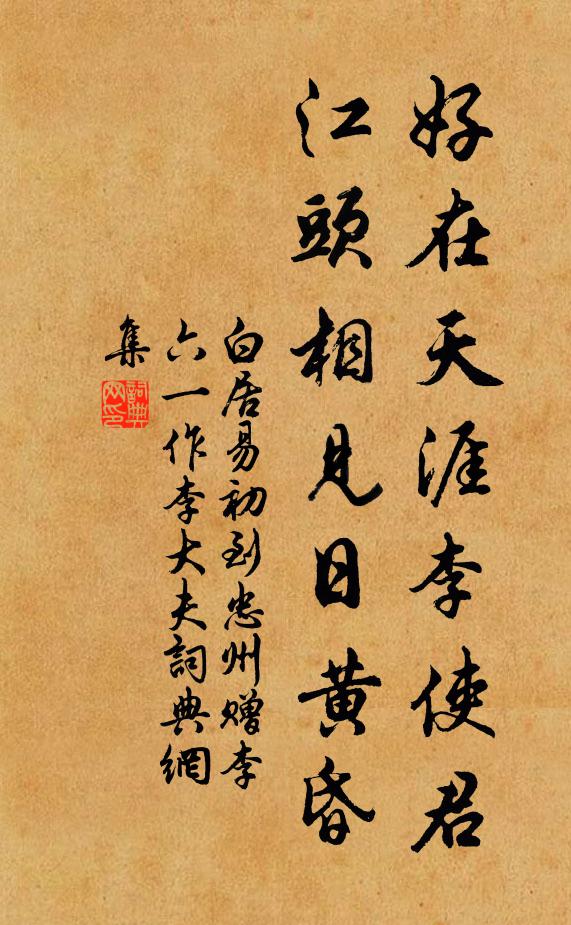 好在天涯李使君
江頭相見日黃昏
白居易初到忠州赠李
六一作李大夫詞典網
集
詞典
网印